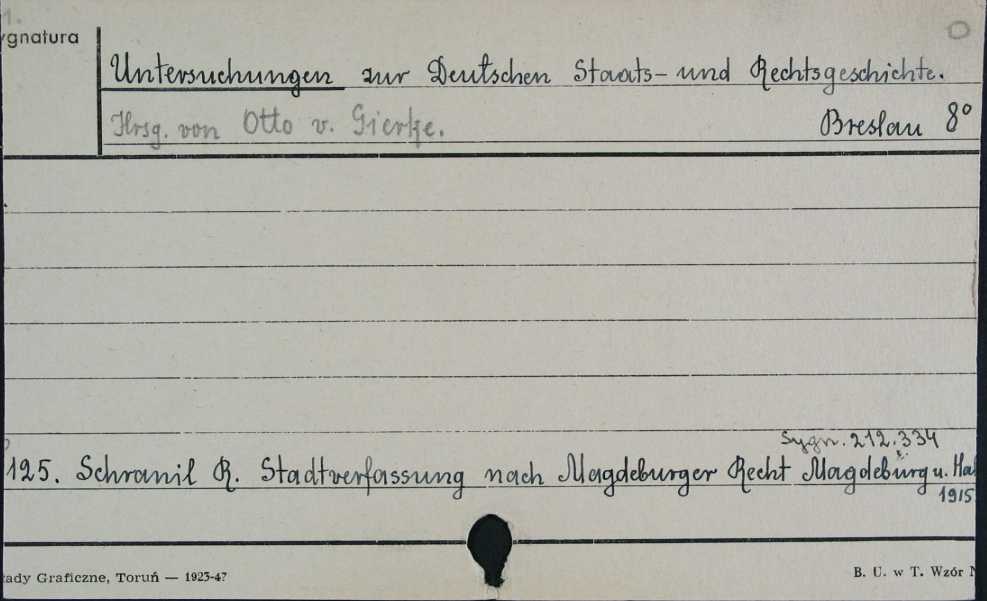 1.
ygnatura
Untersuchungen zur Deutschen Staats- und Rechtsgeschichte.
Hrsg. von Otto v. Gierke. Breslau 8°
Sygn. 212.334
125. Schranil R. Stadtverfassung nach Magdeburger Recht Magdeburg u. Hal
1915
łady Graficzne, Toruń — 1925-47 B. U. w T. Wzór N